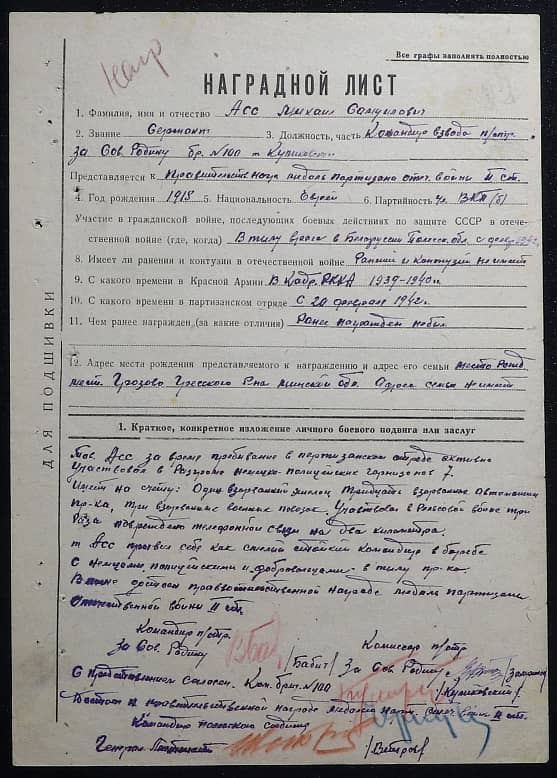 Наgr
Все графы заполнять полностью
НАГРАДНОЙ ЛИСТ
1. Фамилия, имя и отчество Асс Михаил Самуилович
2. Звание Сержант 3. Должность, часть Командир взвода п/отр.
за Сов. Родину бр. №100 т Куликовск
Представляется к правительств. медаль партизана отеч. войны II ст.
4. Год рождения 1918 5. Национальность Еврей 6. Партийность ВКП(б)
Участие в гражданской войне, последующих боевых действиях по защите СССР в отече-
ственной войне (где, когда) В тылу врага в Белоруссии Полесск. обл. с февр. 1942
8. Имеет ли ранения и контузии в отечественной войне Ранений и контузий не имеет
9. С какого времени в Красной Армии В Кадр. РККА 1939-1940гг
10. С какого времени в партизанском отряде С 20 февраля 1942г.
11. Чем ранее награжден (за какие отличия) Ранее награжден не был
12. Адрес места рождения представляемого к награждению и адрес его семьи место Рожд
мест. Грозово Гресского Р-на Минской обл. Адреса семьи не имеет
ДЛЯ ПОДШИВКИ
1. Краткое, конкретное изложение личного боевого подвига или заслуг
Тов. Асс за время пребывания в партизанском отряде активно
Участвовал в Разгроме немецко-полицейских гарнизонов 7.
Имеет на счету: Один взорванный эшелон, тридцать взорванные автомашины
пр-ка, три взорванные военных повозок. Участвовал в Рельсовой войне три
Раза повреждено телефонной связи на два километра.
т Асс проявил себе как смелый стойкий командир в борьбе
с немцами, полицейскими и "добровольцами" в тылу пр-ка.
достоин правительственной награде медаль партизана
Отечественной войны II ст.
Командир п/отр. Комиссар п/отр
За Сов. Родину /Бабич/ За Сов. Родину
С представлением согласен. Ком. бриг. №100
Достоин правительственной награде медали парт. отеч. войны II ст.
Командир соедин
Генерал /Ветров/